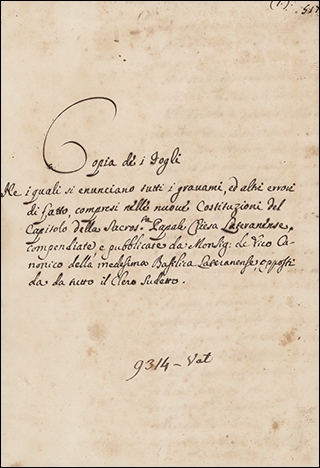 (1).
517
Copia dè i Fogli
Ne i quali si enunciano tutti i gravami, ed altri errori
di fatto, compresi nelle nuove Costituzioni del
Capitolo della Sacros.ta Papale Chiesa Lateranense,
compendiate e pubblicate da Monsig: de Vico Ca-
nonico della medesima Basilica Lateranense, opposti
da da tutto il Clero sudetto.
9314 - Vat